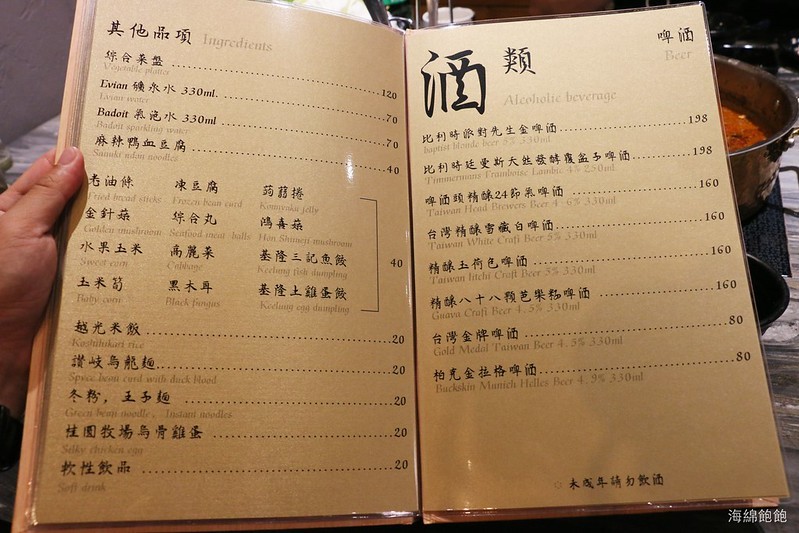 其他品項 Ingredients
綜合菜盤 120
Vegetable platter
Evian 礦泉水 330ml. 70
Evian water
Badoit 氣泡水 330ml 70
Badoit sparkling water
麻辣鴨血豆腐 40
Sanuki udon noodles
老油條 凍豆腐 蒟蒻捲
Fried bread sticks Frozen bean curd Konnyaku jelly
金針菇 綜合丸 鴻喜菇
Golden mushroom Seafood meat balls Hon Shimeji mushroom
水果玉米 高麗菜 基隆三記魚餃 40
Sweet corn Cabbage Keelung fish dumpling
玉米筍 黑木耳 基隆土雞蛋餃
Baby corn Black fungus Keelung egg dumpling
越光米飯 20
Koshihikari rice
讚岐烏龍麵 20
Spice bean curd with duck blood
冬粉，王子麵 20
Green bean noodle 、 Instant noodles
桂園牧場烏骨雞蛋 20
Silky chicken egg
軟性飲品 20
Soft drink
酒類
Alcoholic beverage
啤酒
Beer
比利時派對先生金啤酒 198
baptist blonde beer 5% 330ml
比利時廷曼斯天然發酵覆盆子啤酒 198
Timmermans Framboise Lambic 4% 250ml
啤酒頭精釀24節氣啤酒 160
Taiwan Head Brewers Beer 4-6% 330ml
台灣精釀雪藏白啤酒 160
Taiwan White Craft Beer 5% 330ml
精釀玉荷包啤酒 160
Taiwan litchi Craft Beer 5% 330ml
精釀八十八顆芭樂籽啤酒 160
Guava Craft Beer 5% 330ml
台灣金牌啤酒 80
Gold Medal Taiwan Beer 4.5% 330ml
柏克金拉格啤酒 80
Buckskin Munich Helles Beer 4.9% 330ml
未成年請勿飲酒
海綿飽飽